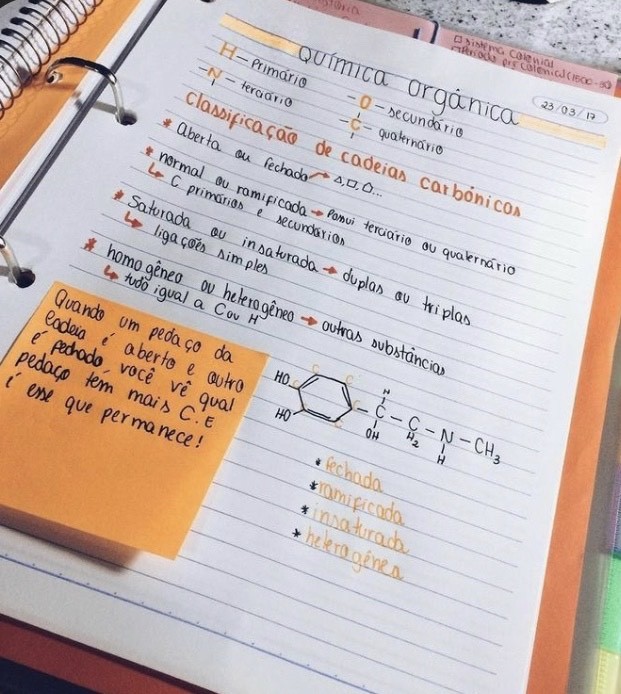 □ sistema colonial
Química orgânica
23/03/17
H - Primário
-O- secundário
-N- terciário
-C- quaternário
Classificação de cadeias carbônicas
* Aberta ou fechada → △, □, ⬠...
* normal ou ramificada → Possui terciário ou quaternário
↳ C primários e secundários
* Saturada ou insaturada → duplas ou triplas
↳ ligações simples
* homogênea ou heterogênea → outras substâncias
↳ tudo igual a C ou H
Quando um pedaço da
cadeia é aberto e outro
é fechado, você vê qual
pedaço tem mais C. E
é esse que permanece!
HO
HO
C C C C C C
H
- C - C - N - CH3
OH H2 H
* fechada
* ramificada
* insaturada
* heterogênea